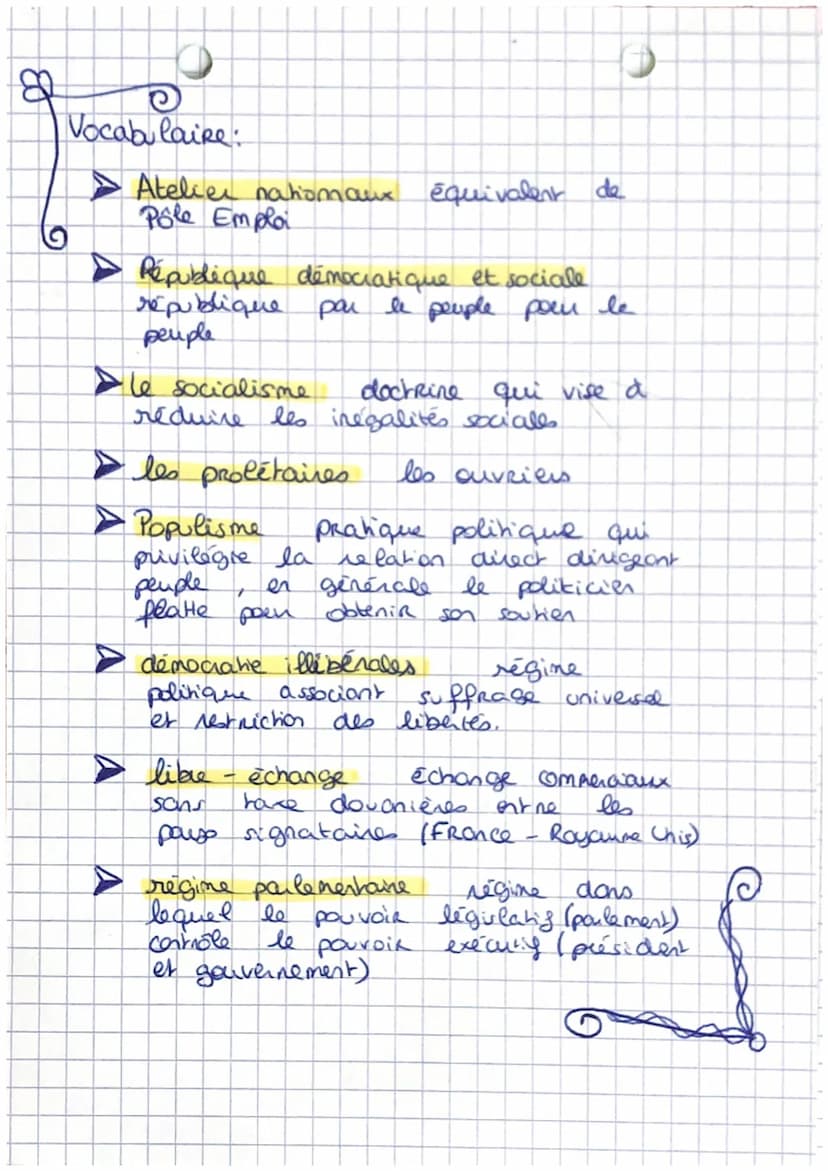 Vocabulaire:
➤ Atelier nationaux équivalent de
Pôle Emploi
➤ République démocratique et sociale
république par le peuple pour le
peuple
➤ le socialisme doctrine qui vise à
réduire les inégalités sociales
➤ les prolétaires les ouvriers
➤ Populisme pratique politique qui
privilégie la relation direct dirigeant
peuple, en générale le politicien
flatte pour obtenir son soutien
➤ démocratie illibérales régime
politique associant suffrage universel
et restriction des libertés.
➤ libre - échange échange commerciaux
sans taxe douanières entre les
pays signataires (France - Royaume Unis)
➤ régime parlementaire régime dans
lequel le pouvoir législatif (parlement)
contrôle le pouvoir exécutif (président
et gouvernement)